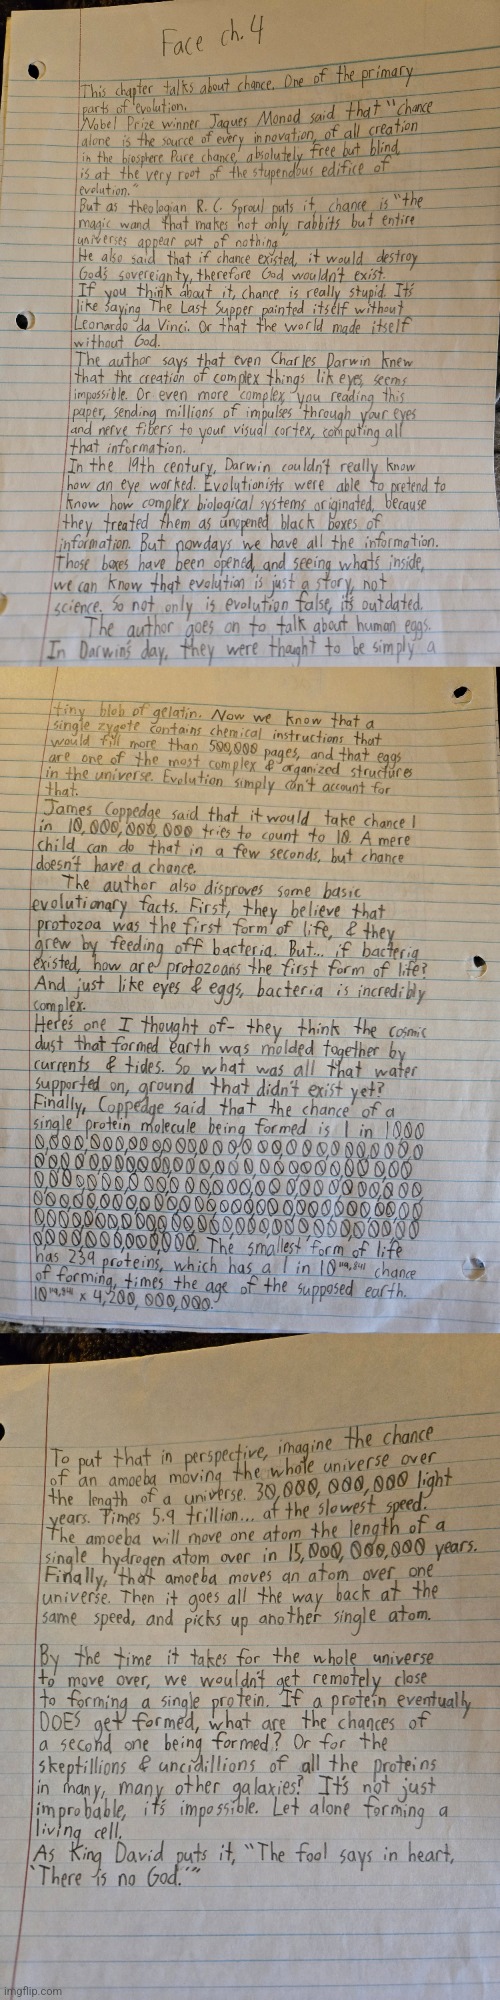 Face ch. 4
This chapter talks about chance. One of the primary
parts of evolution.
Nobel Prize winner Jaques Monod said that "chance
alone is the source of every innovation, of all creation
in the biosphere Pure chance, absolutely free but blind
is at the very root of the stupendous edifice of
evolution."
But as theologian R. C. Sproul puts it, chance is "the
magic wand that makes not only rabbits but entire
universes appear out of nothing
He also said that if chance existed, it would destroy
God's sovereignty, therefore God wouldn't exist.
If you think about it, chance is really stupid. It's
like saying The Last Supper painted itself without
Leonardo da Vinci. Or that the world made itself
without God.
The author says that even Charles Darwin knew
that the creation of complex things lik eyes seems
impossible. Or even more complex, you reading this
paper, sending millions of impulses through your eyes
and nerve fibers to your visual cortex, computing all
that information.
In the 19th century, Darwin couldn't really know
how an eye worked. Evolutionists were able to pretend to
know how complex biological systems originated, because
they treated them as unopened black boxes of
information. But nowdays we have all the information.
Those boxes have been opened, and seeing whats inside,
we can know that evolution is just a story, not
science. So not only is evolution false, it's outdated.
The author goes on to talk about human eggs.
In Darwin's day, they were thought to be simply a
tiny blob of gelatin. Now we know that a
single zygote contains chemical instructions that
would fill more than 500,000 pages, and that eggs
are one of the most complex & organized structures
in the universe. Evolution simply can't account for
that.
James Coppedge said that it would take chance 1
in 10,000,000,000 tries to count to 10. A mere
child can do that in a few seconds, but chance
doesn't have a chance.
The author also disproves some basic
evolutionary facts. First, they believe that
protozoa was the first form of life, & they
grew by feeding off bacteria. But... if bacteria
existed, how are protozoans the first form of life?
And just like eyes & eggs, bacteria is incredibly
complex.
Here's one I thought of- they think the cosmic
dust that formed earth was molded together by
currents & tides. So what was all that water
supported on, ground that didn't exist yet?
Finally, Coppedge said that the chance of a
single protein molecule being formed is 1 in 1000
The smallest form of life
has 239 proteins, which has a 1 in 10 119,841 chance
of forming, times the age of the supposed earth.
10 119,841 x 4,200,000,000.
To put that in perspective, imagine the chance
of an amoeba moving the whole universe over
the length of a universe. 30,000,000,000 light
years. Times 5.9 trillion... at the slowest speed.
The amoeba will move one atom the length of a
single hydrogen atom over in 15,000,000,000 years.
Finally, that amoeba moves an atom over one
universe. Then it goes all the way back at the
same speed, and picks up another single atom.
By the time it takes for the whole universe
to move over, we wouldn't get remotely close
to forming a single protein. If a protein eventually
DOES get formed, what are the chances of
a second one being formed? Or for the
skeptillions & uncidillions of all the proteins
in many, many other galaxies? It's not just
improbable, it's impossible. Let alone forming a
living cell.
As King David puts it, "The fool says in heart,
'There is no God.'"
imgflip.com